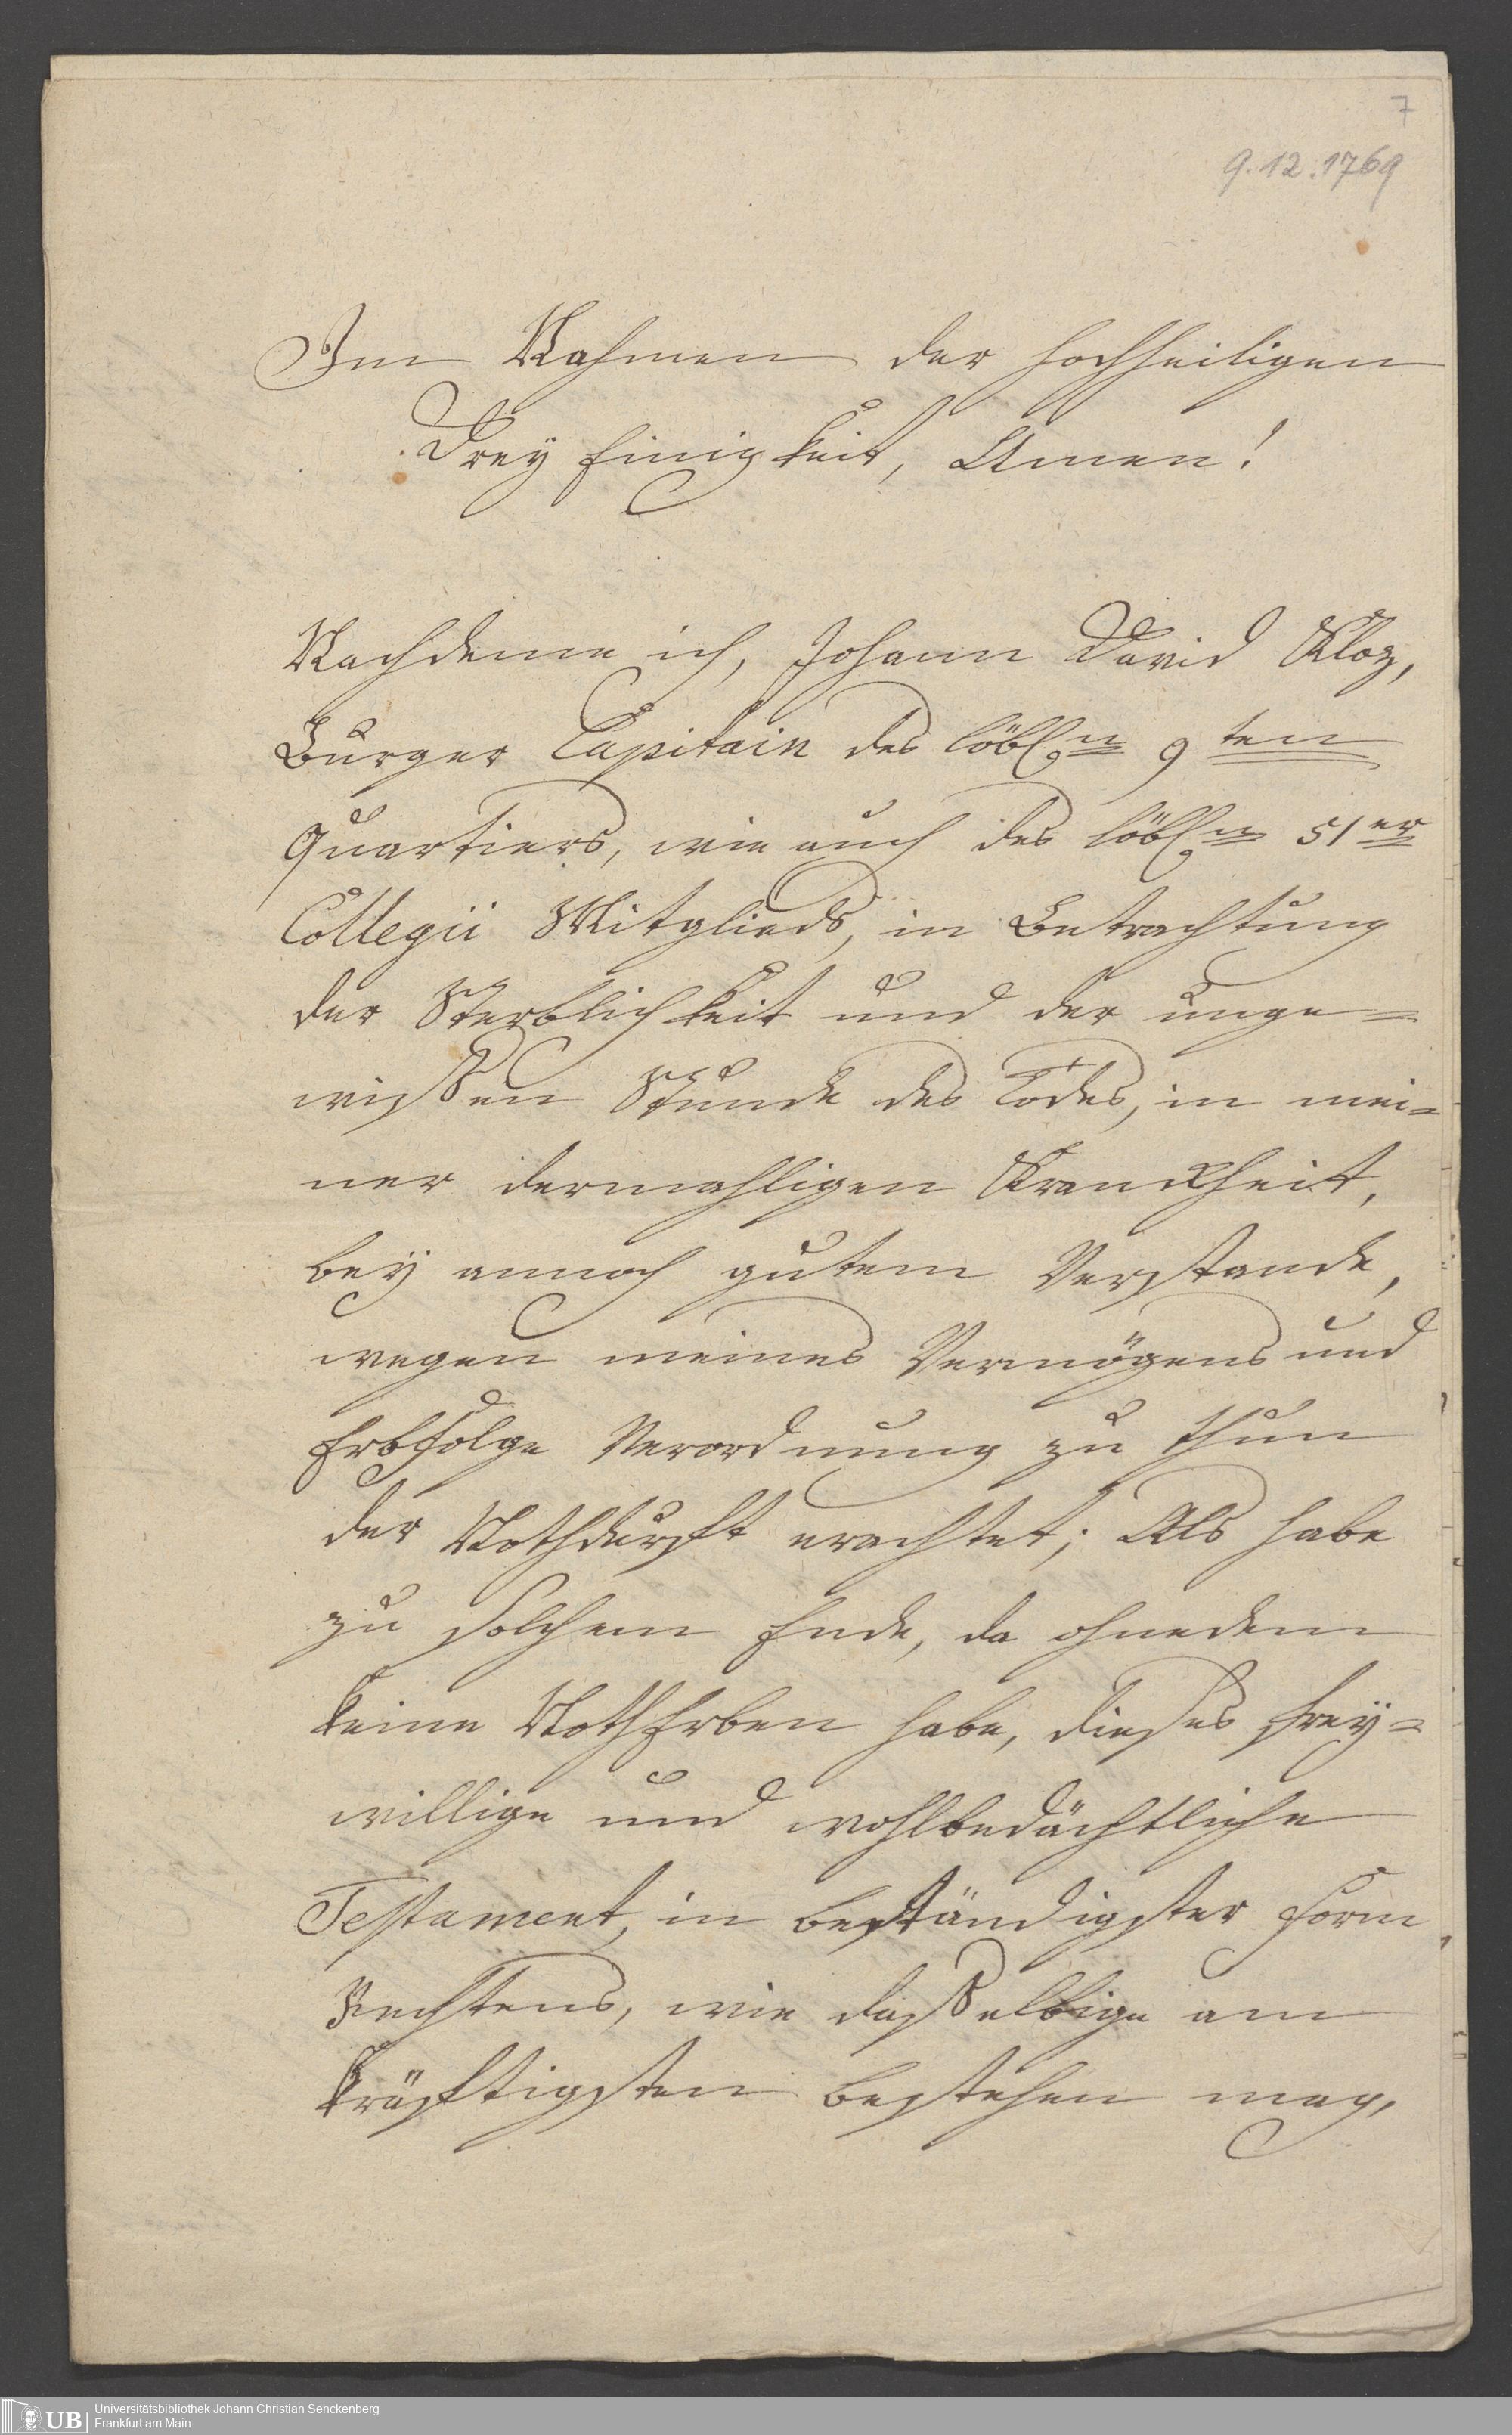 7
9.12.1769
Im Nahmen der hochheiligen
Drey Einigkeit, Amen!
Nachdeme ich, Johann David Kloz,
Burger Capitain des löbln 9ten
Quartiers, wie auch des löbln 51er
Collegii Mitglieds, in Betrachtung
der Sterblichkeit und der unge=
wißen Stunde des Todes, in mei=
ner dermahligen Kranckheit,
bey annoch gutem Verstande,
wegen meines Vermögens und
Erbfolge Verordnung zu thun
der Nothdurfft erachtet; Als habe
zu solchem Ende, da ohnedem
keine NothErben habe, dieses frey=
willige und wohlbedächtliche
Testament, in beständigster Form
Rechtens, wie daßelbige am
kräfftigsten bestehen mag,
UB
Universitätsbibliothek Johann Christian Senckenberg
Frankfurt am Main